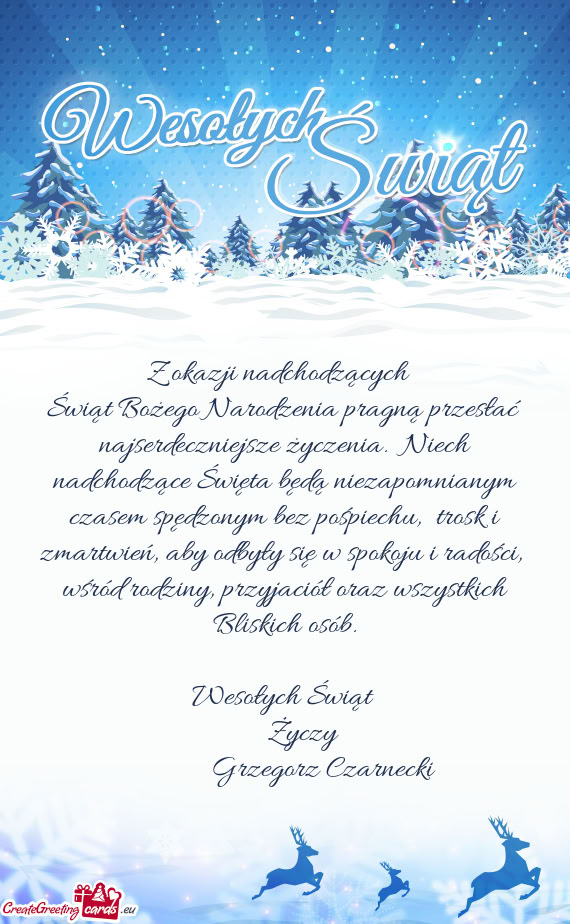 Wesołych
Świąt
Z okazji nadchodzących
Świąt Bożego Narodzenia pragną przesłać
najserdeczniejsze życzenia. Niech
nadchodzące Święta będą niezapomnianym
czasem spędzonym bez pośpiechu, trosk i
zmartwień, aby odbyły się w spokoju i radości,
wśród rodziny, przyjaciół oraz wszystkich
Bliskich osób.
Wesołych Świąt
Życzy
Grzegorz Czarnecki
CreateGreeting cards .eu